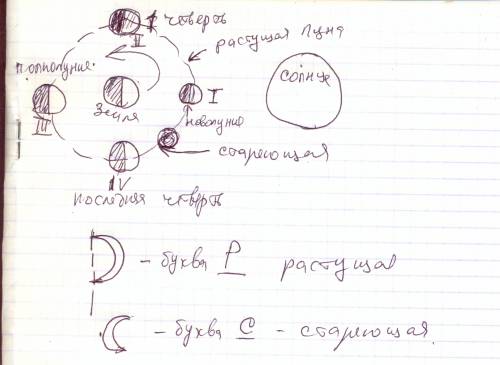 I четверть
II
растущая Луна
полнолуние
солнце
Земля
I
III
новолуние
стареющая
IV
последняя четверть
- буква Р растущая
- буква С - стареющая.